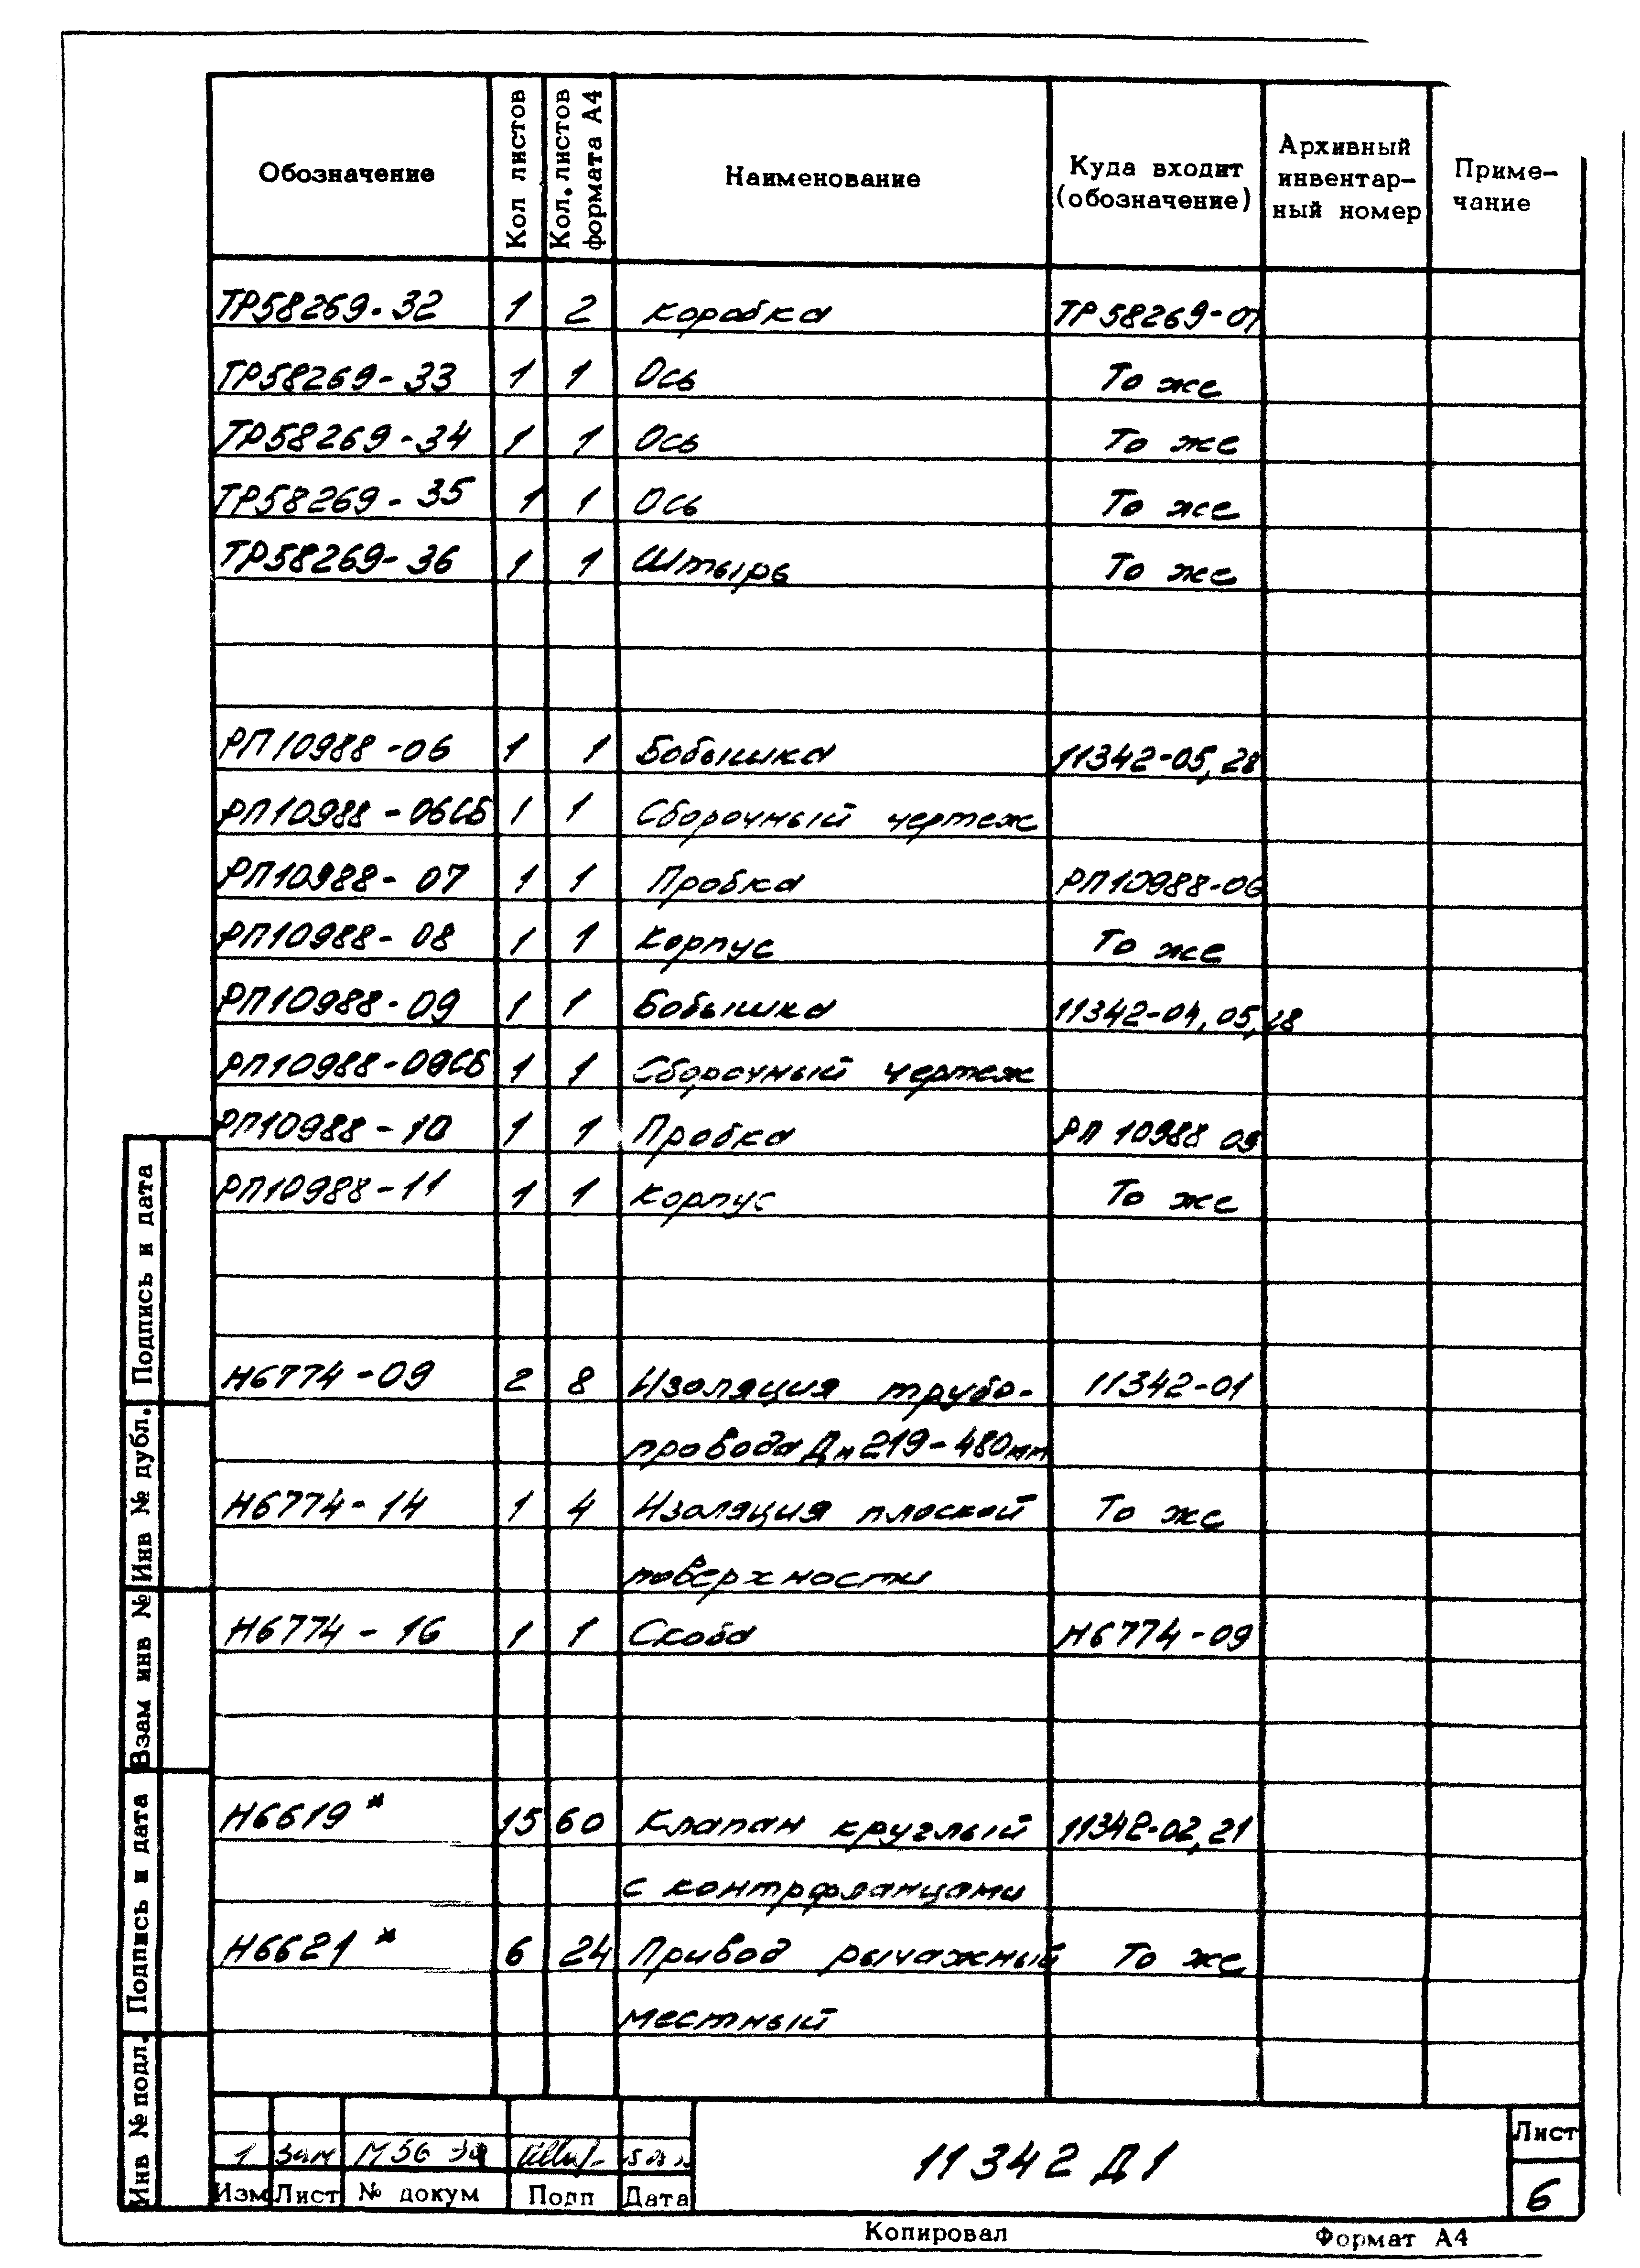 Обозначение Кол листов Кол.листов формата А4 Наименование Куда входит (обозначение) Архивный инвентар- ный номер Приме- чание
ТР58269-32 1 2 Коробка ТР58269-01
ТР58269-33 1 1 Ось То же
ТР58269-34 1 1 Ось То же
ТР58269-35 1 1 Ось То же
ТР58269-36 1 1 Штырь То же
РП10988-06 1 1 Бобышка 11342-05,28
РП10988-06СБ 1 1 Сборочный чертеж
РП10988-07 1 1 Пробка РП10988-06
РП10988-08 1 1 Корпус То же
РП10988-09 1 1 Бобышка 11342-04,05,28
РП10988-09СБ 1 1 Сборочный чертеж
РП10988-10 1 1 Пробка РП 10988 09
РП10988-11 1 1 Корпус То же
Н6774-09 2 8 Изоляция трубо- 11342-01
провода Дн 219-480мм
Н6774-14 1 4 Изоляция плоской То же
поверхности
Н6774-16 1 1 Скоба Н6774-09
Н6619* 15 60 Клапан круглый 11342-02,21
с контрфланцами
Н6621* 6 24 Привод рычажный То же
местный
Подпись и дата
Инв № дубл.
Взам инв №
Подпись и дата
Инв № подл.
1 Зам М56
Изм Лист № докум Подп Дата
11342 Д1
Лист
6
Копировал Формат А4